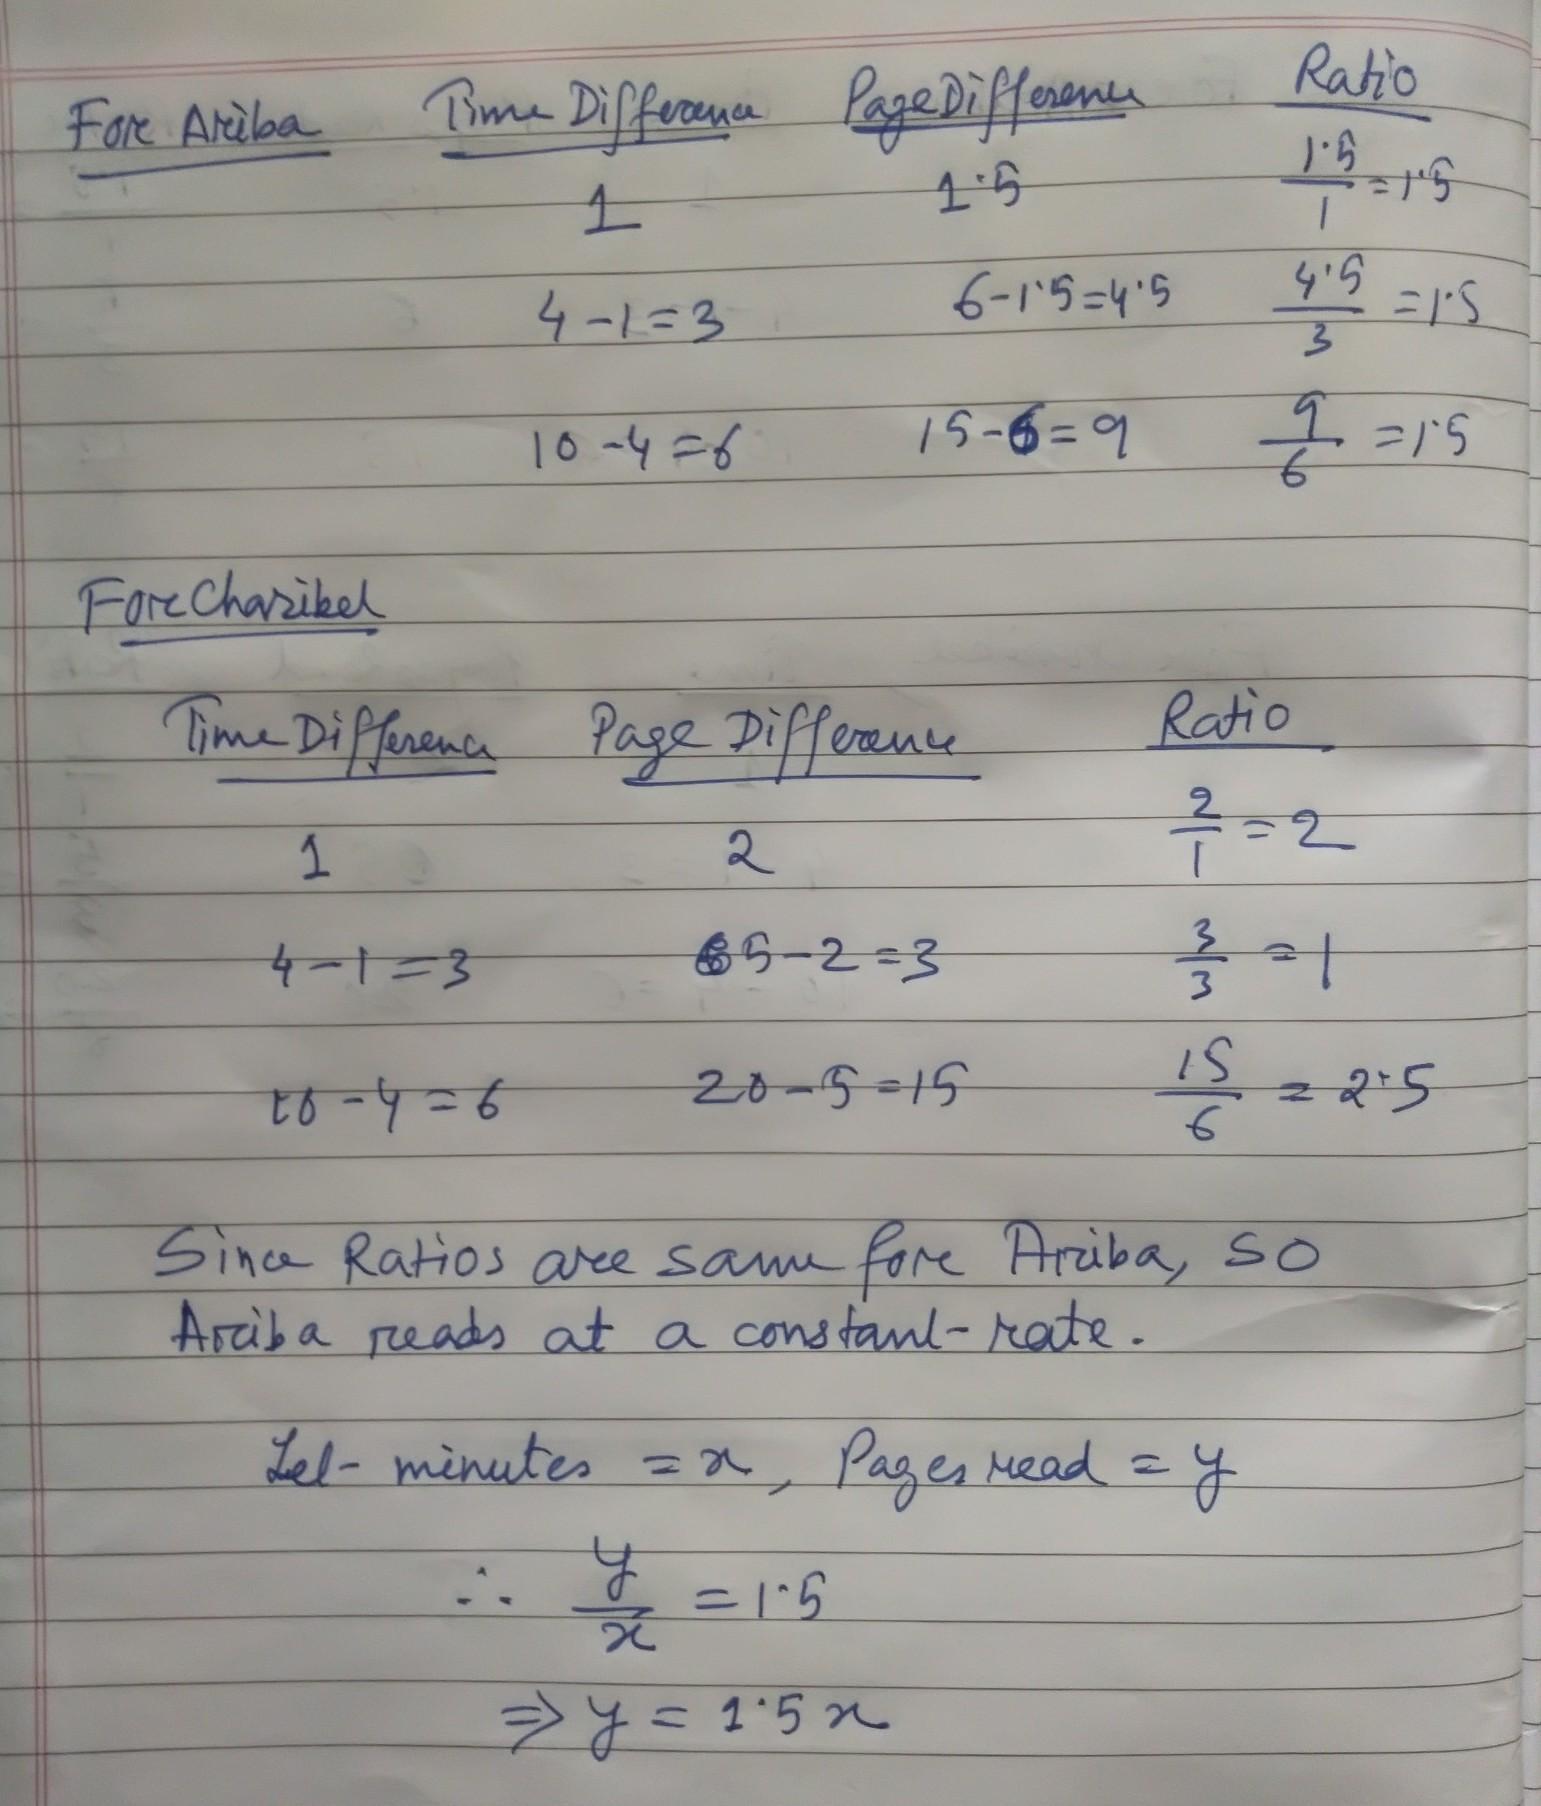 For Ariba Time Difference Page Difference Ratio
1 1.5 1.5/1 = 1.5
4 - 1 = 3 6 - 1.5 = 4.5 4.5/3 = 1.5
10 - 4 = 6 15 - 6 = 9 9/6 = 1.5
For Charibel
Time Difference Page Difference Ratio
1 2 2/1 = 2
4 - 1 = 3 5 - 2 = 3 3/3 = 1
10 - 4 = 6 20 - 5 = 15 15/6 = 2.5
Since Ratios are same for Ariba, so
Ariba reads at a constant rate.
Let minutes = x, Pages read = y
∴ y/x = 1.5
⇒ y = 1.5x